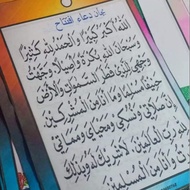 بچاءن دعاء افتتاح
اللهُ أَكْبَرُ كَبِيْرًا وَالْحَمْدُ لِلهِ كَثِيْرًا
وَسُبْحَانَ اللهِ بُكْرَةً وَأَصِيْلًا وَجَّهْتُ
وَجْهِيَ لِلَّذِيْ فَطَرَ السَّمٰوَاتِ وَالْأَرْضَ
حَنِيْفًا مُسْلِمًا وَمَا أَنَا مِنَ الْمُشْرِكِيْنَ
إِنَّ صَلَاتِيْ وَنُسُكِيْ وَمَحْيَايَ وَمَمَاتِيْ
رَبِّ الْعَالَمِيْنَ لَا شَرِيْكَ لَهُ وَبِذٰلِكَ
وَأَنَا مِنَ الْمُسْلِمِيْنَ